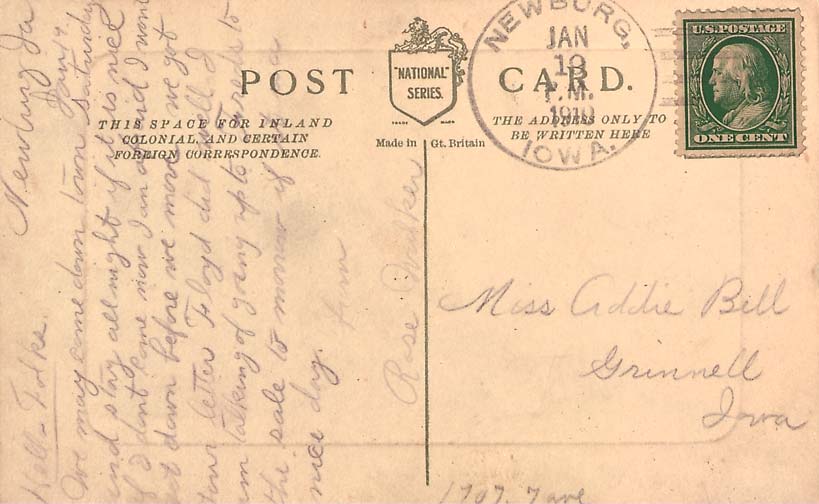 POST CARD.
"NATIONAL"
SERIES.
TRADE MARK
THIS SPACE FOR INLAND
COLONIAL, AND CERTAIN
FOREIGN CORRESPONDENCE.
THE ADDRESS ONLY TO
BE WRITTEN HERE
Made in Gt. Britain
NEWBURG,
JAN
P.M.
1910
IOWA.
U.S. POSTAGE
ONE CENT
Miss Addie Bell
Grinnell
Iowa
1707. 7 ave
Newburg Ia
Jan
Hell-Folks.
We may come down town Saturday
and stay all night if it is nice
if I dont come now I am afraid I wont
get down before we move. We got
your letter Floyd did well. I
am talking of going up to to
the sale to morrow if a
nice day.
Rose Walker